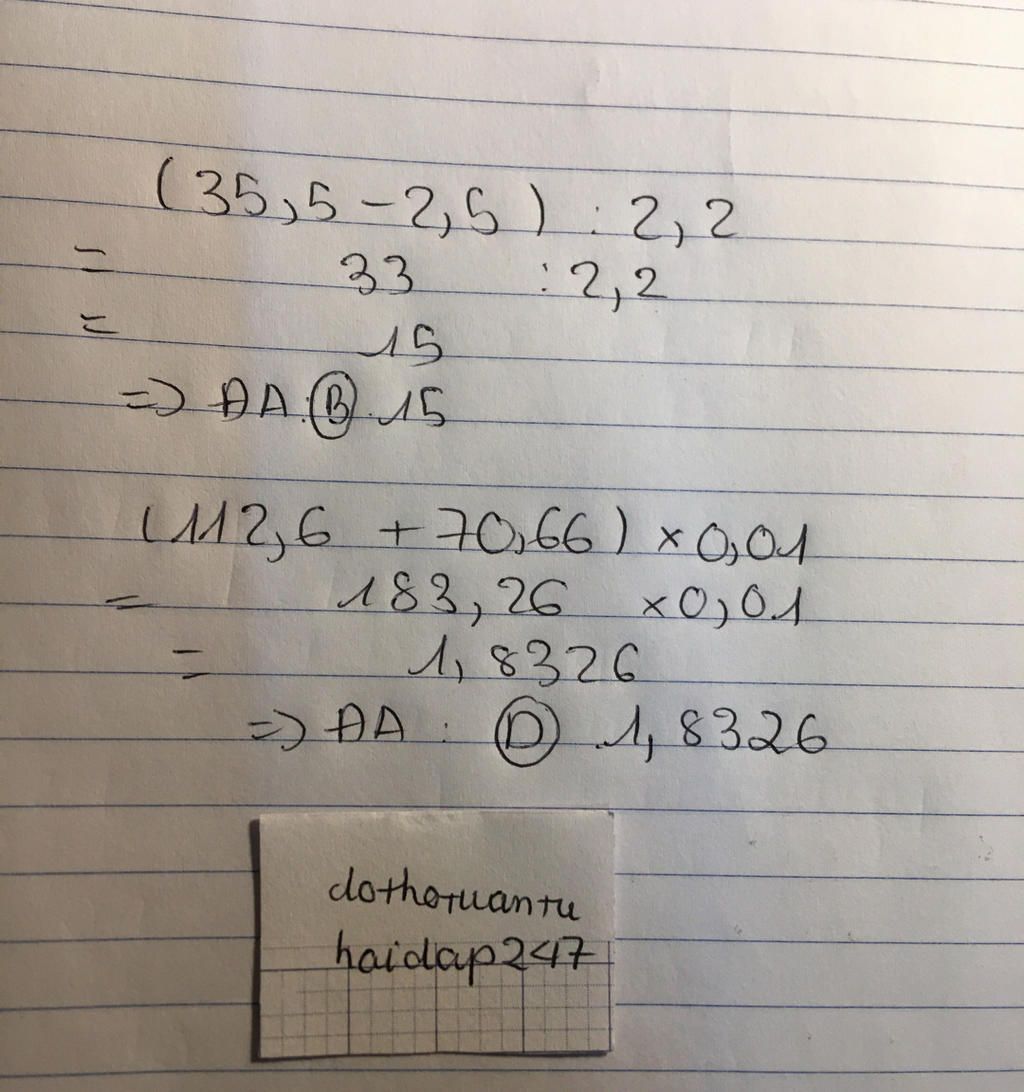 (35,5 - 2,5) : 2,2
= 33 : 2,2
= 15
=> ĐA: B. 15
(112,6 + 70,66) × 0,01
= 183,26 × 0,01
= 1,8326
=> ĐA : D 1,8326
dothotuantu
haidap247